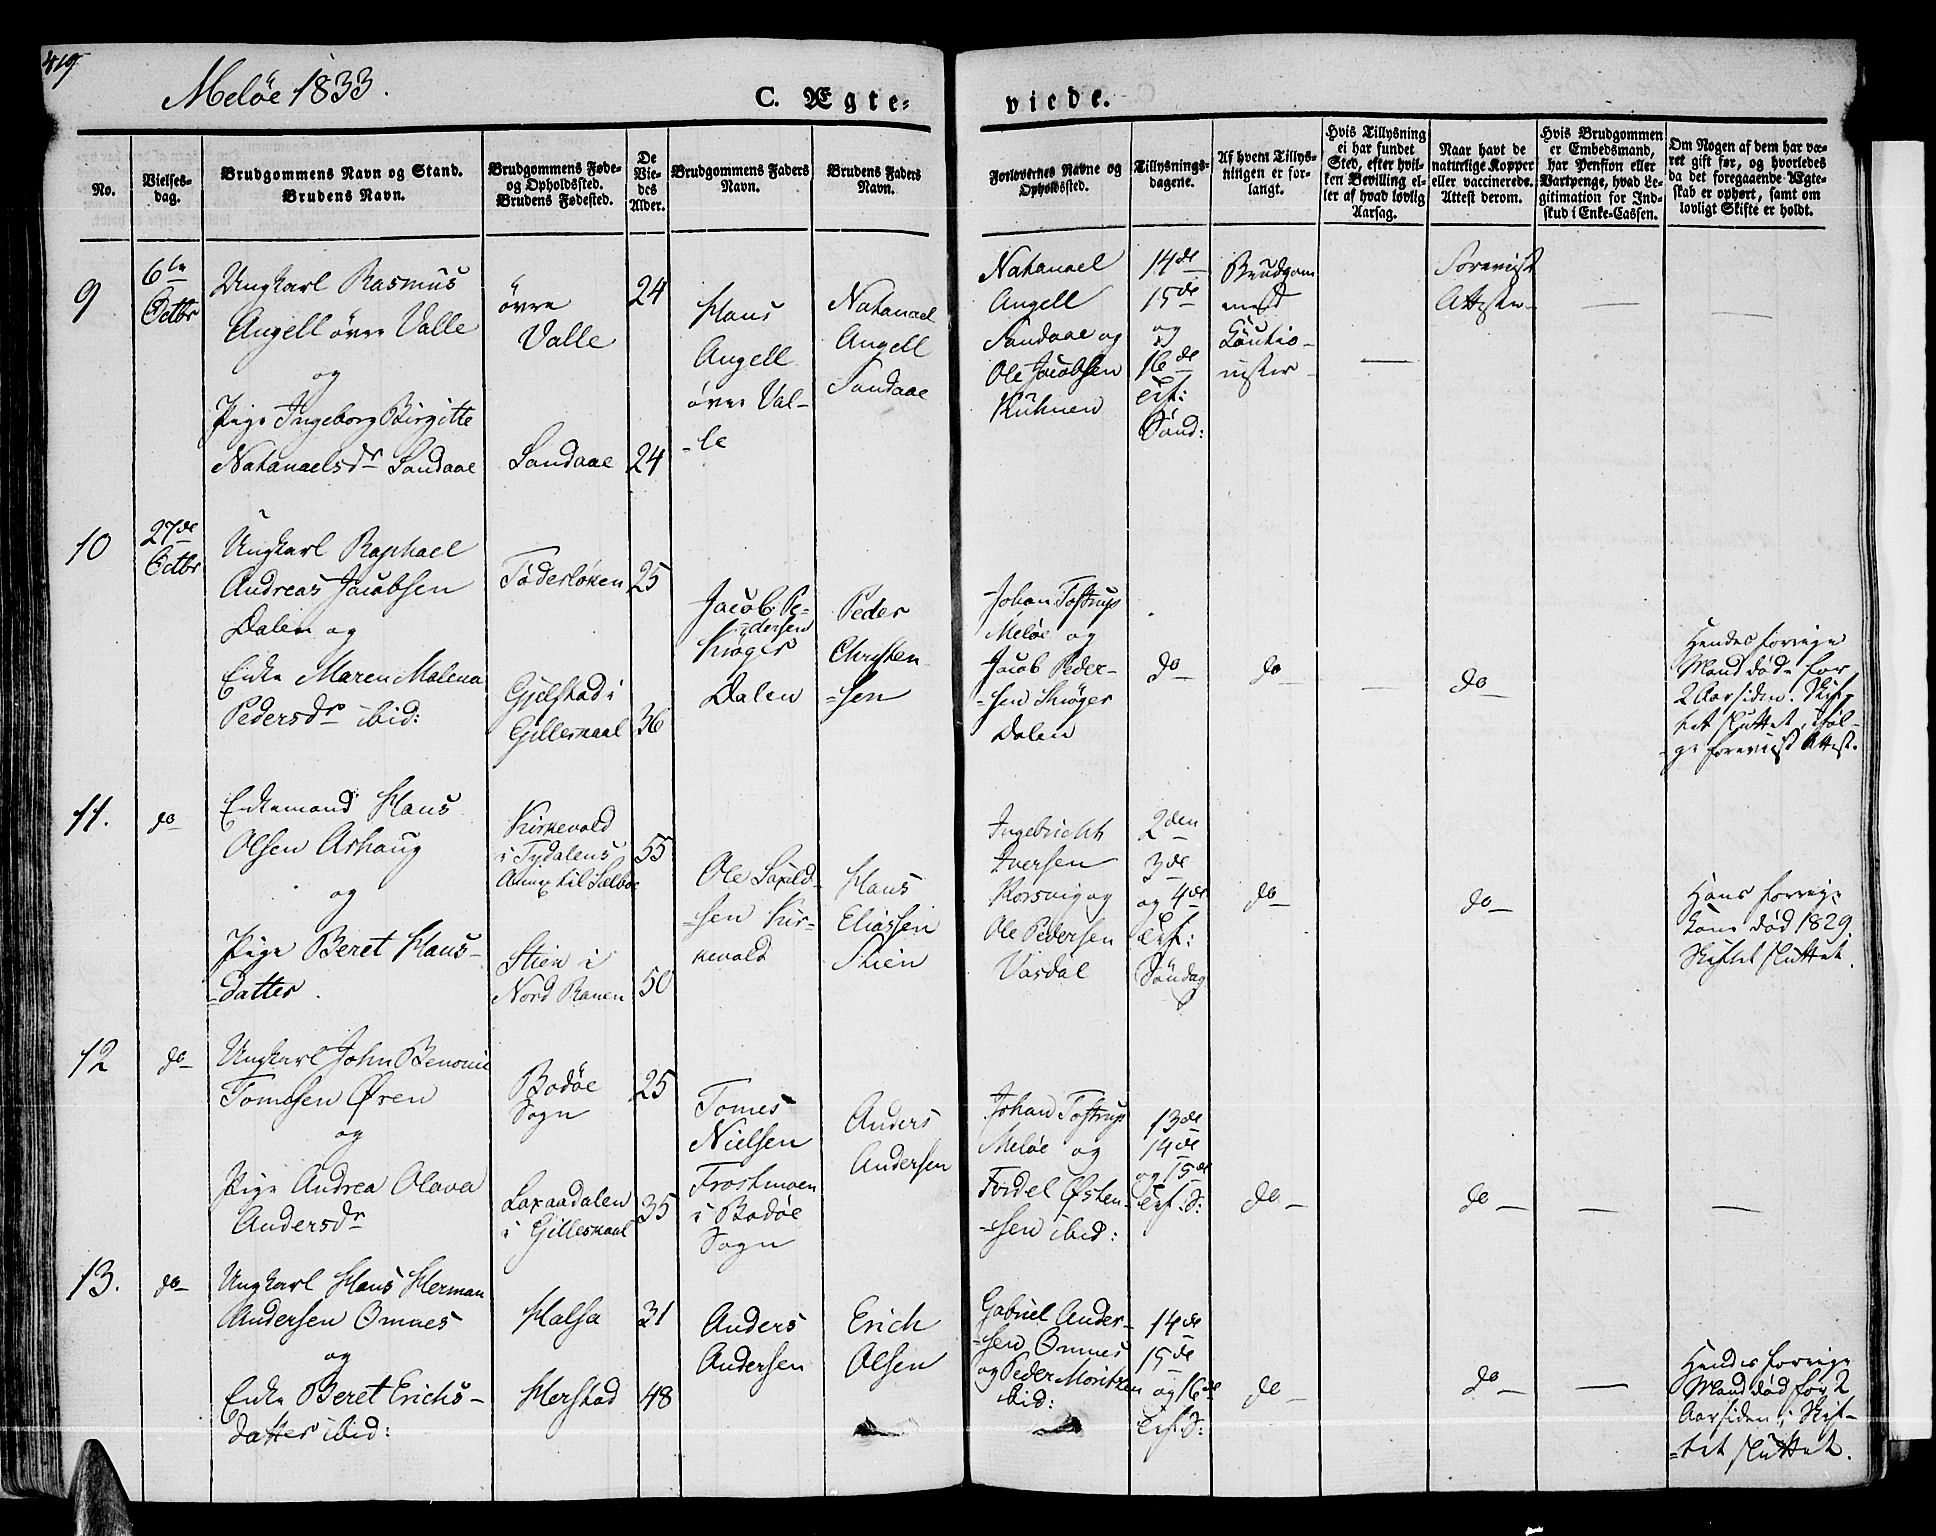 419
Meløe 1833.
C. Ægte-
viede.
No.
Vielses-
dag.
Brudgommens Navn og Stand.
Brudens Navn.
Brudgommens Føde-
og Opholdssted.
Brudens Fødested.
De
Vie-
des
Alder.
Brudgommens Faders
Navn.
Brudens Faders
Navn.
Forlovernes Navne og
Opholdssted.
Tillysnings-
dagene.
Af hvem Tillys-
ningen er for-
langt.
Hvis Tillysning
ei har fundet
Sted, efter hvil-
ken Bevilling el-
ler af hvad lovlig
Aarsag.
Naar havt de
naturlige Kopper
eller vaccinerede.
Attest derom.
Hvis Brudgommen
er Embedsmand,
har Pension eller
Vartpenge, hvad Le-
gitimation for Ind-
skud i Enke-Cassen.
Om Nogen af dem har væ-
ret gift før, og hvorledes
da det foregaaende Ægte-
skab er ophørt, samt om
lovligt Skifte er holdt.
9
6te
Octbr
Ungkarl Rasmus
Angell övre Valle
og
Pige Ingeborg Birgitte
Nathanaelsdr Sandaae
övre
Valle
Sandaae
24
24
Hans
Angell
övre Val-
-le
Nathanael
Angell
Sandaae
Nathanael
Angell
Sandaae og
Ole Jacobsen
Kühnen
14de
15de
og
16de
Sönd:
Brudgom
med
Cautio-
nister
Foreviist
Attester
10
27de
Octbr
Ungkarl Raphael
Andreas Jacobsen
Dalen og
Enke Maren Malena
Pedersdr ibid:
Tödeslöken
Gjelstad i
Gilleskaal
25
36
Jacob Pe-
dersen
Skröger
Dalen
Peder
Christen-
-sen
Johan Tostrup
Meløe og
Jacob Peder-
-sen Skröger
Dalen
do
do
do
Hendes forrige
Mand døde for
2 Aar siden. Skif-
tet sluttet, iföl-
ge foreviist Attest.
11.
do
Enkemand Hans
Olsen Ashaug
og
Pige Beret Hans-
datter.
Kirkevold
i Tydalens
Annex til Sælboe
Stien i
Nord Ranen
55
50
Ole
-sen Kir-
kevold
Hans
Eliassen
Stien
Ingebricht
Iversen
Korsvig og
Ole Pedersen
Vasdal
2den
3de
og 4de
Söndag
do
do
Hans forrige
Kone død 1829.
Skiftet sluttet.
12
do
Ungkarl John Benonie
Tomesen Øren
og
Pige Andrea Olava
Andersdr
Bodøe
Sogn
Laxaadalen
i Gilleskaal
25
35
Tomes
Nielsen
Frostmoen
i Bodøe
Sogn
Anders
Andersen
Johan Tostrup
Meløe og
Fordel Østen-
-sen ibid:
13de
14de
og 15de
do
do
13.
do
Ungkarl Hans Herman
Andersen Ømnes
og
Enke Beret Erichs-
datter ibid:
Halsa
Herstad
31
48
Anders
Andersen
Erich
Olsen
Gabriel Ander-
-sen Ømnes
og Peder Moritzen
ibid:
14de
15de
og 16de
do
do
Hendes forrige
Mand død for 2
Aar siden; Skif-
-tet sluttet.